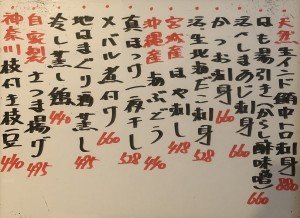 天然生インド鮪中トロ刺身 880
はも湯引き(からし酢味噌) 660
活〆しまあじ刺身 660
かつお刺身 660
活生北海だこ刺身
宮城産ほや刺し 418
沖縄産海ぶどう 440
真ほっけ一夜干し 528
メバル煮付け 660
地はまぐり酒蒸し 495
冷し蒸し鮑 440
自家製さつま揚げ 495
神奈川枝付き枝豆 440